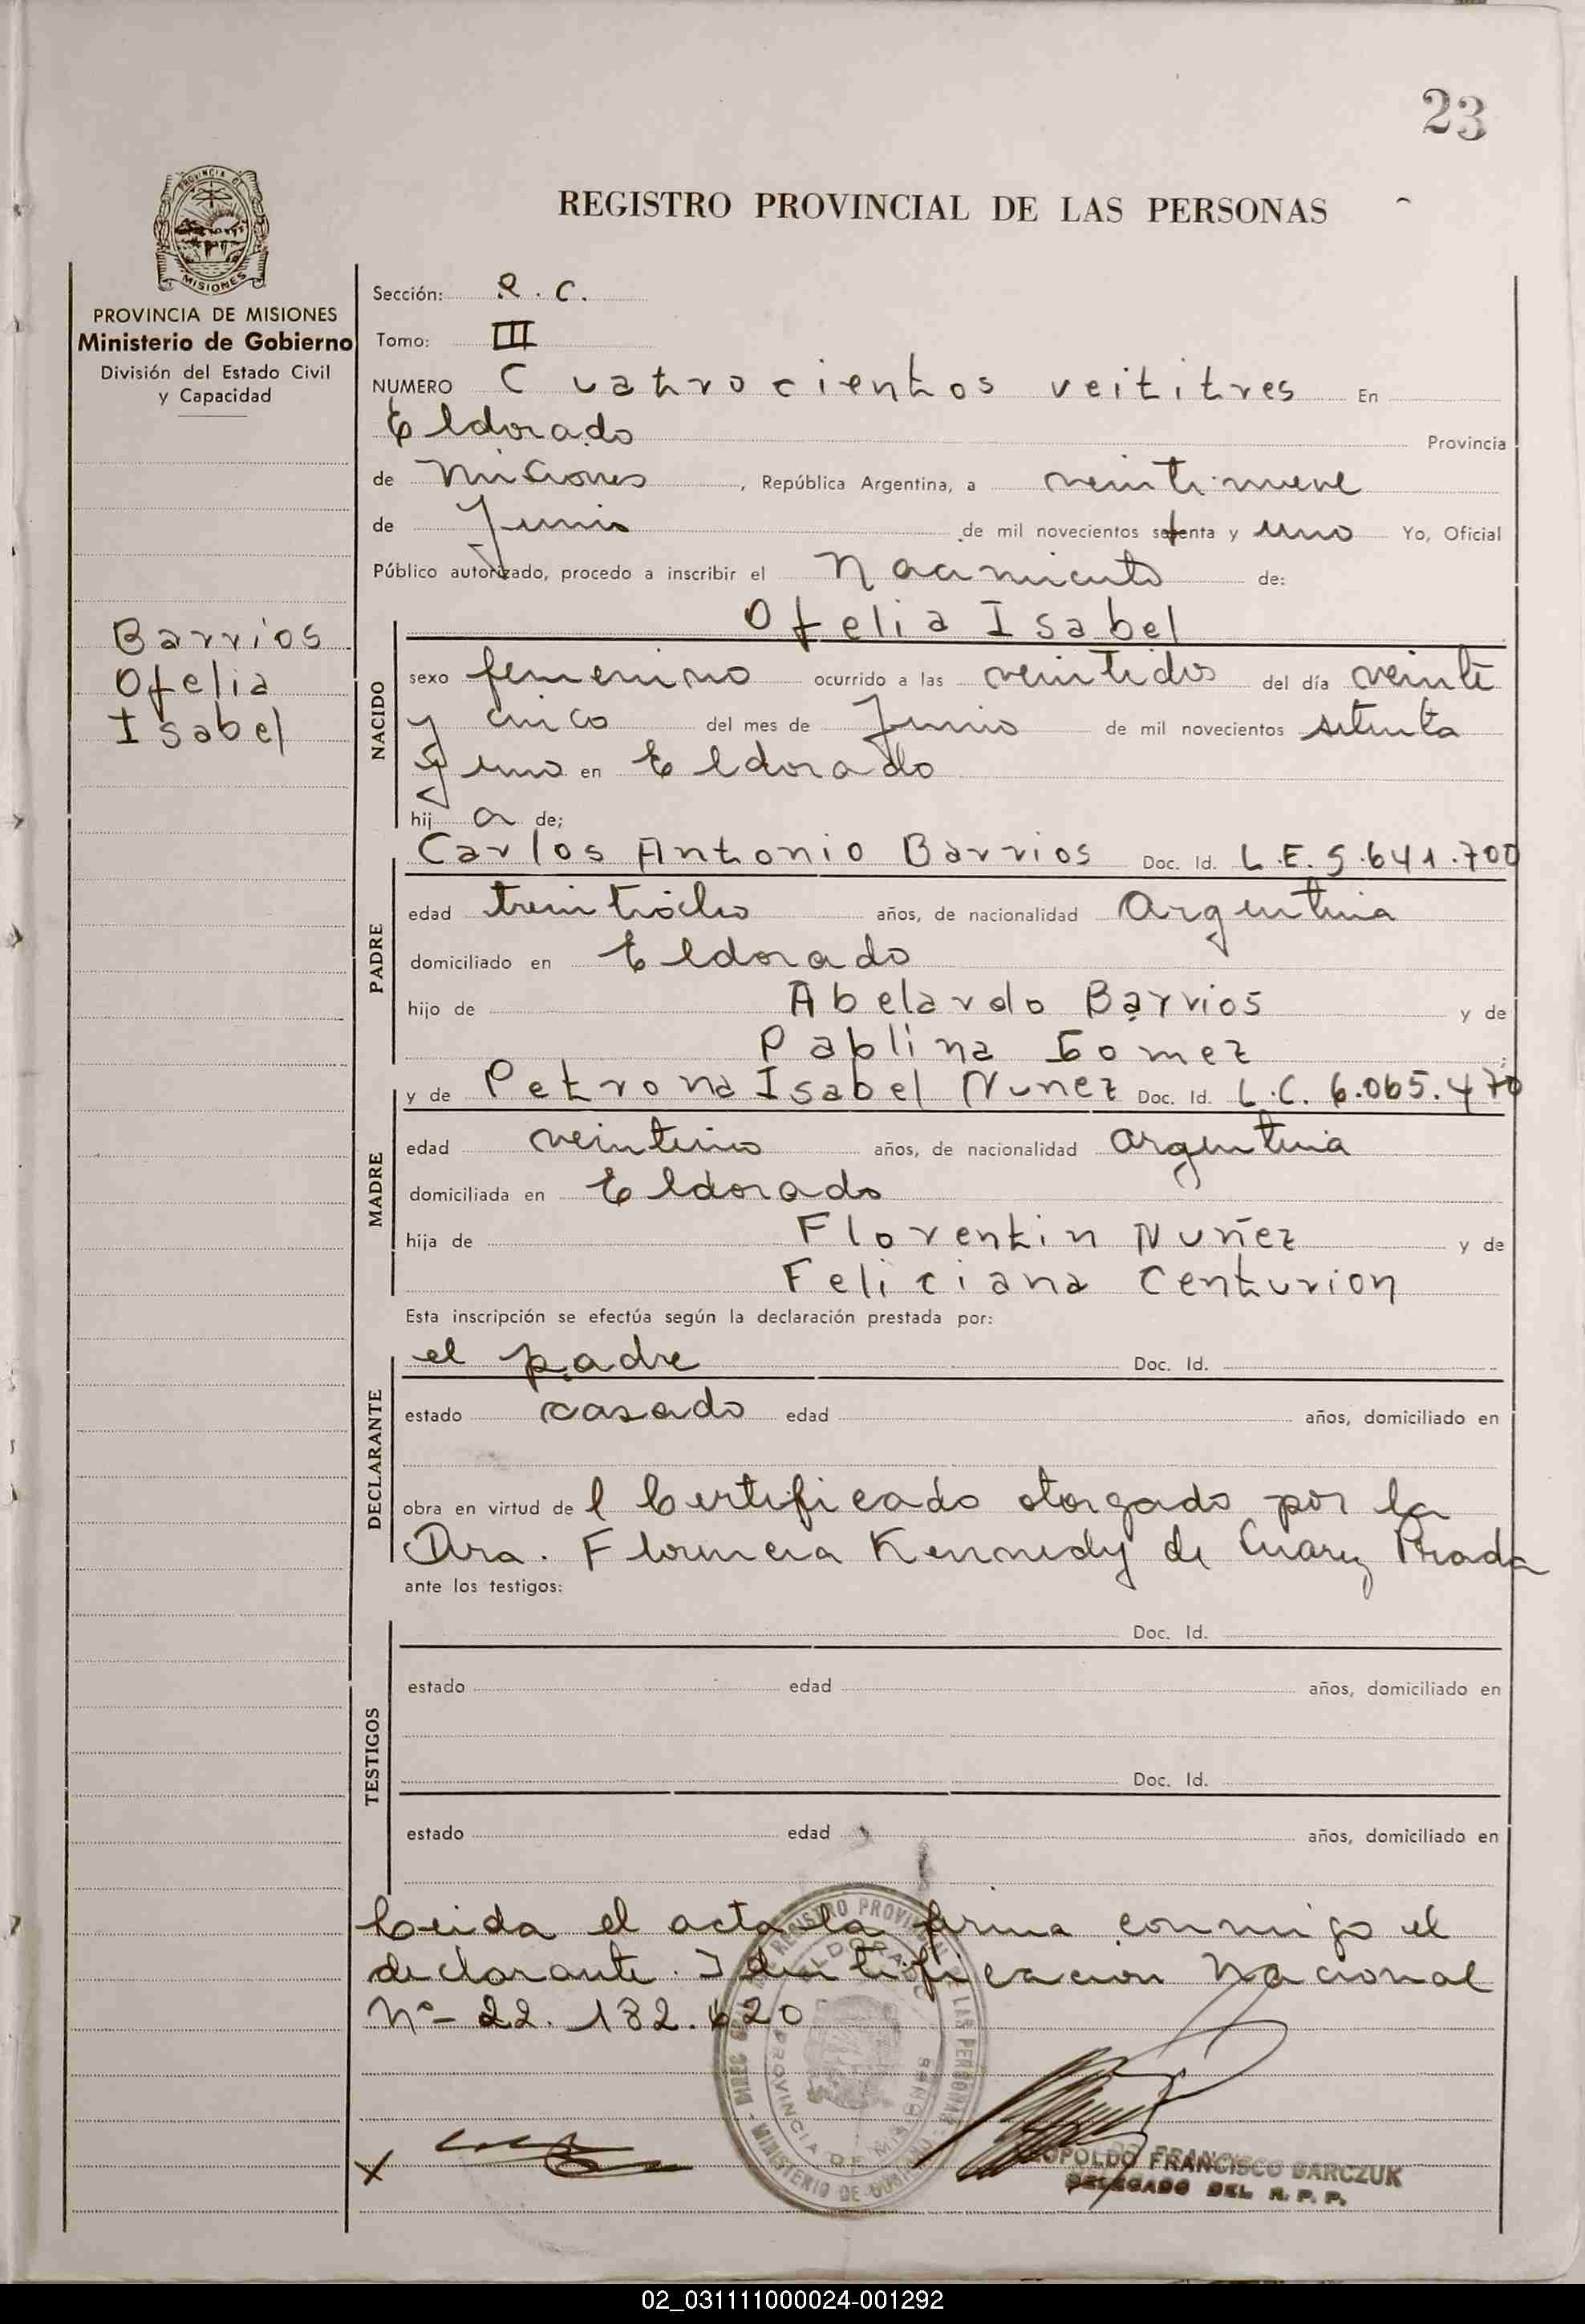 23
PROVINCIA DE
MISIONES
REGISTRO PROVINCIAL DE LAS PERSONAS
PROVINCIA DE MISIONES
Ministerio de Gobierno
División del Estado Civil
y Capacidad
Barrios
Ofelia
Isabel
Sección: R. C.
Tomo: III
NUMERO Cuatrocientos veititres En
Eldorado Provincia
de Misiones, República Argentina, a veintinueve
de Junio de mil novecientos setenta y uno Yo, Oficial
Público autorizado, procedo a inscribir el Nacimiento de:
Ofelia Isabel
NACIDO
sexo femenino ocurrido a las veintidos del día veinte
y cinco del mes de Junio de mil novecientos setenta
y uno en Eldorado
hij a de;
Carlos Antonio Barrios Doc. Id. L.E. 5.641.700
PADRE
edad treintiocho años, de nacionalidad Argentina
domiciliado en Eldorado
hijo de Abelardo Barrios y de
Pablina Gomez
y de Petrona Isabel Nunez Doc. Id. L.C. 6.065.470
MADRE
edad años, de nacionalidad argentina
domiciliada en Eldorado
hija de Florentin Nuñez y de
Feliciana Centurion
Esta inscripción se efectúa según la declaración prestada por:
el padre Doc. Id.
DECLARANTE
estado casado edad años, domiciliado en
obra en virtud de l Certificado otorgado por la
Dra. Kennedy de Prada
ante los testigos:
Doc. Id.
TESTIGOS
estado edad años, domiciliado en
Doc. Id.
estado edad años, domiciliado en
Leida el acta la firma conmigo el
declarante. Identificacion Nacional
Nº- 22.182.620
REGISTRO PROVINCIAL DE LAS PERSONAS
MINISTERIO DE GOBIERNO
ELDORADO
PROVINCIA DE MISIONES
X
LEOPOLDO FRANCISCO BARCZUK
DELEGADO DEL R. P. P.
02_031111000024-001292